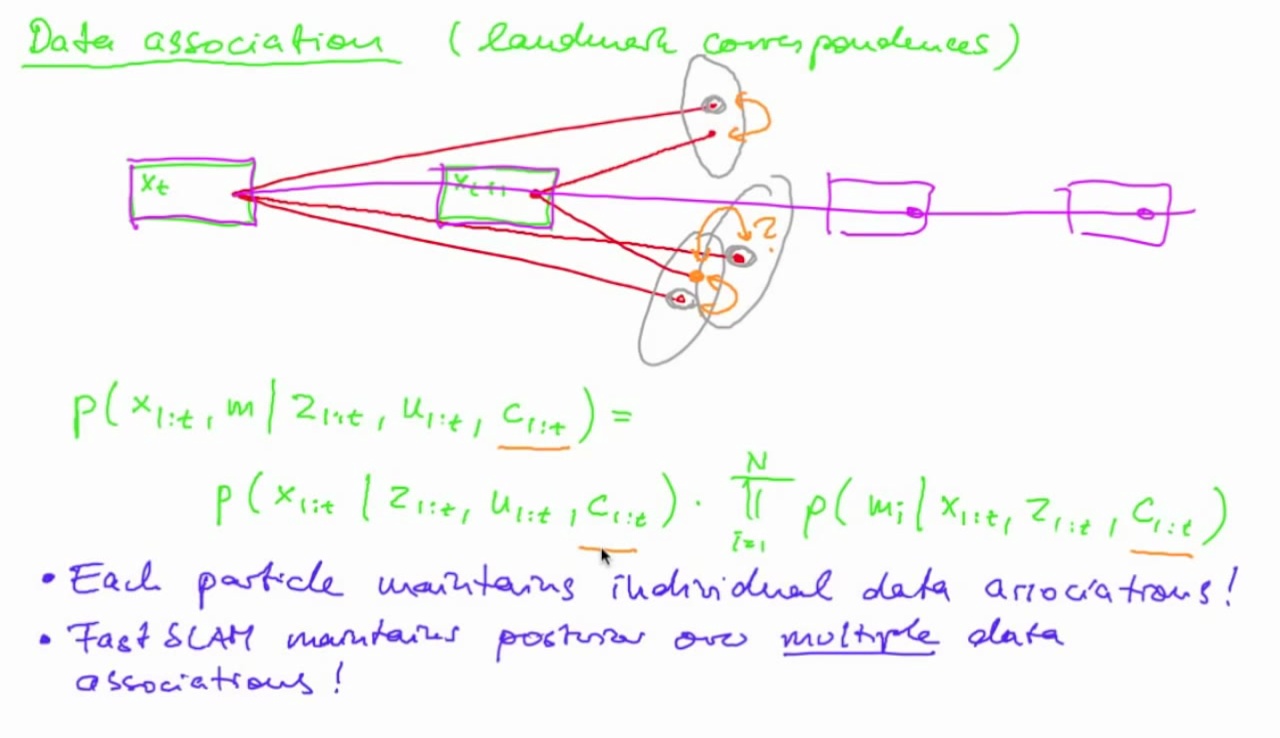 Data association (landmark correspondences)
x_t
x_{t+1}
?
p(x_{1:t}, m | z_{1:t}, u_{1:t}, c_{1:t}) =
p(x_{1:t} | z_{1:t}, u_{1:t}, c_{1:t}) · ∏_{i=1}^{N} p(m_i | x_{1:t}, z_{1:t}, c_{1:t})
• Each particle maintains individual data associations!
• FastSLAM maintains posterior over multiple data
associations!